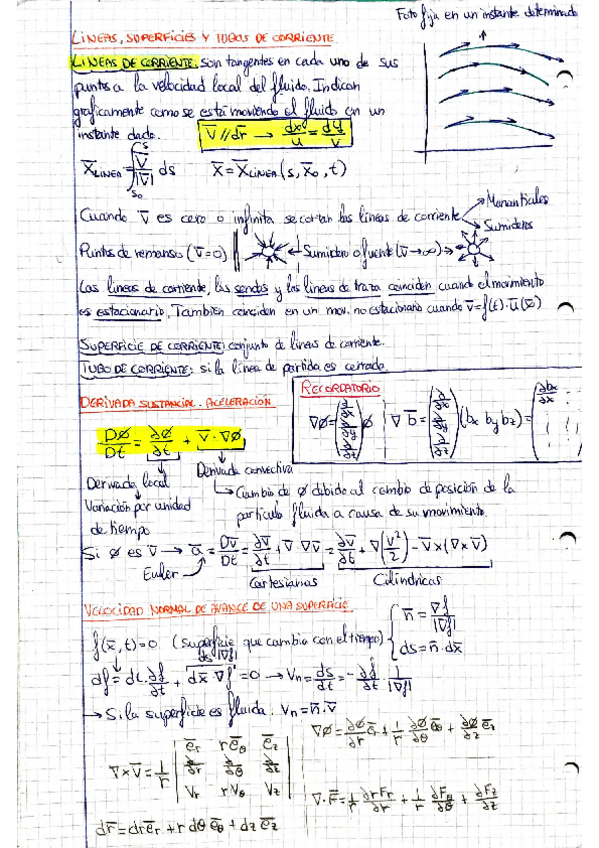 Foto fija en un instante determinado
LINEAS, SUPERFICIES Y TUBOS DE CORRIENTE
LINEAS DE CORRIENTE: son tangentes en cada uno de sus
puntos a la velocidad local del fluido. Indican
graficamente como se está moviendo el fluido en un
instante dado. v̅ // dr̅ → dx/u = dy/v
x̅LINEA = ∫_{s₀}^{s} v̅/|v̅| ds x̅ = x̅LINEA (s, x̅₀, t)
Cuando v̅ es cero o infinita se cortan las lineas de corriente → Manantiales
→ Sumideros
Puntos de remanso (v̅=0) ← Sumidero o fuente (v̅→∞) →
Las lineas de corriente, las sendas y las lineas de traza coinciden cuando el movimiento
es estacionario. Tambien coinciden en un mov. no estacionario cuando v̅=f(t)·u̅(x̅)
SUPERFICIE DE CORRIENTE: conjunto de lineas de corriente.
TUBO DE CORRIENTE: si la linea de partida es cerrada.
RECORDATORIO
∇Ø = (∂/∂x ∂/∂y ∂/∂z) Ø ∇b̅ = (∂/∂x ∂/∂y ∂/∂z) (bx by bz) = (∂bx/∂x
DERIVADA SUSTANCIAL. ACELERACIÓN
DØ/Dt = ∂Ø/∂t + v̅·∇Ø
Derivada local
Derivada convectiva
Variación por unidad
de tiempo
→ Cambio de Ø debido al cambio de posición de la
particula fluida a causa de su movimiento.
Si Ø es v̅ → a̅ = Dv̅/Dt = ∂v̅/∂t + v̅·∇v̅ = ∂v̅/∂t + ∇(v²/2) - v̅×(∇×v̅)
Euler Cartesianas Cilíndricas
VELOCIDAD NORMAL DE AVANCE DE UNA SUPERFICIE
f(x̅,t)=0 (superficie que cambia con el tiempo) { n̅ = ∇f/|∇f|
ds = n̅·dx̅
ds|∇f|
df = dt·∂f/∂t + dx̅·∇f = 0 → Vn = ds/dt = -∂f/∂t · 1/|∇f|
→ Si la superficie es fluida. Vn = n̅·v̅
∇×v̅ = 1/r | e̅r re̅θ e̅z
∂/∂r ∂/∂θ ∂/∂z
Vr rVθ Vz |
∇Ø = ∂Ø/∂r e̅r + 1/r ∂Ø/∂θ e̅θ + ∂Ø/∂z e̅z
∇·F̅ = 1/r ∂rFr/∂r + 1/r ∂Fθ/∂θ + ∂Fz/∂z
dr̅ = dr e̅r + r dθ e̅θ + dz e̅z